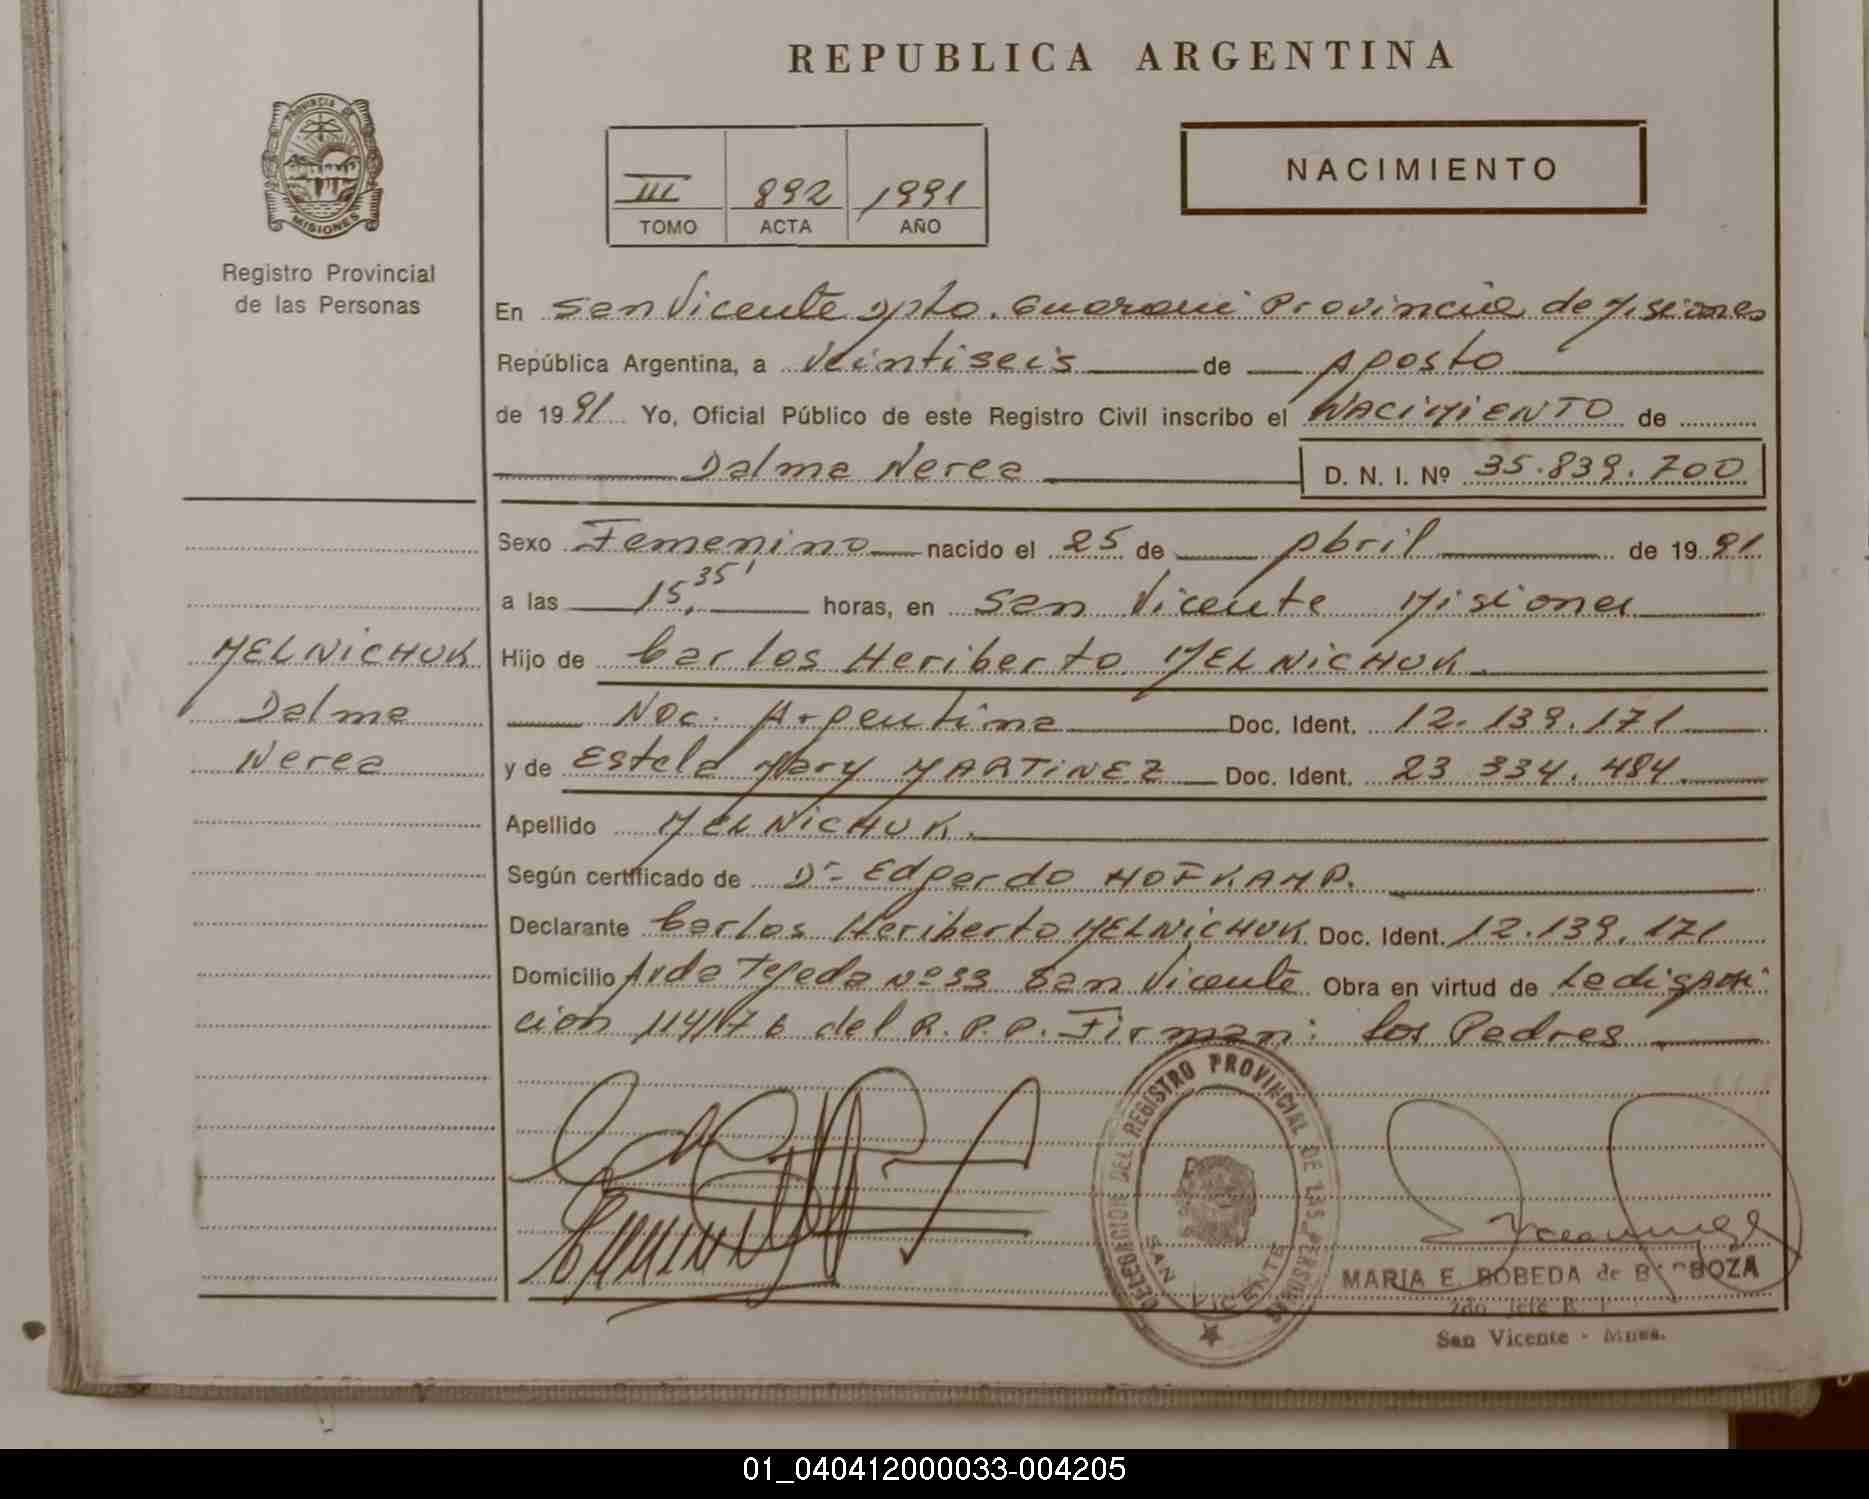 REPUBLICA ARGENTINA
PROVINCIA DE
MISIONES
Registro Provincial
de las Personas
III 892 1991
TOMO ACTA AÑO
NACIMIENTO
En San Vicente Dpto. Guarani Provincia de Misiones
República Argentina, a Veintiseis de Agosto
de 1991 Yo, Oficial Público de este Registro Civil inscribo el NACIMIENTO de
Dalma Nerea D. N. I. Nº 35.839.700
Sexo Femenino nacido el 25 de Abril de 1991
a las 15,35' horas, en San Vicente Misiones
Hijo de Carlos Heriberto MELNICHUK.
Nac. Argentina Doc. Ident. 12.139.171
y de Estela Mary MARTINEZ Doc. Ident. 23 334.484
Apellido MELNICHUK.
Según certificado de Dr- Edgardo HOFKAMP.
Declarante Carlos Heriberto MELNICHUK Doc. Ident. 12.139.171
Domicilio Avda Tejeda Nº 33 San Vicente Obra en virtud de
ción 114/17 6 del R.P.P. Firman: los Padres
MELNICHUK
Dalma
Nerea
DELEGACION DEL REGISTRO PROVINCIAL DE LAS PERSONAS
SAN VICENTE
MARIA E. BOBEDA de BARBOZA
2do Jefe R.
San Vicente - Mnes.
01_040412000033-004205